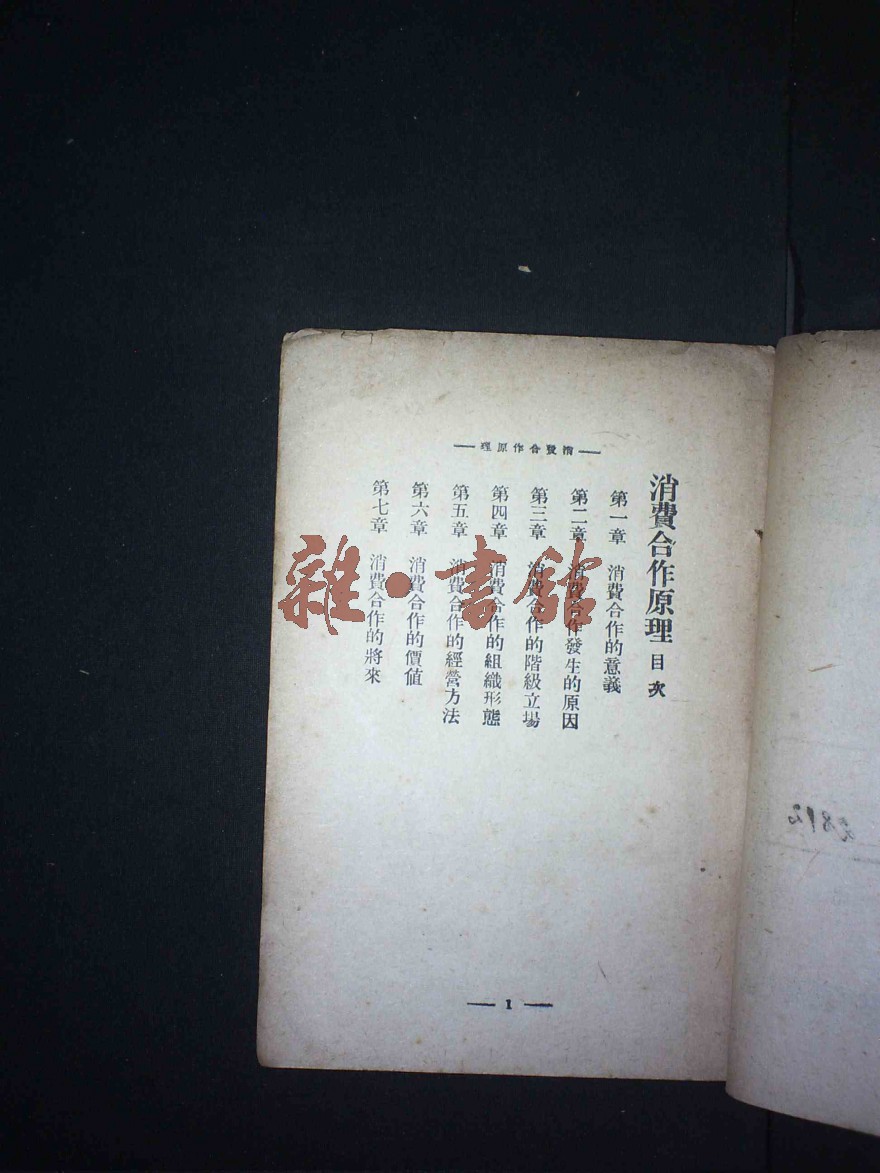 消費合作原理
消費合作原理 目次
第一章 消費合作的意義
第二章 消費合作發生的原因
第三章 消費合作的階級立場
第四章 消費合作的組織形態
第五章 消費合作的經營方法
第六章 消費合作的價值
第七章 消費合作的將來
雜·書館
1